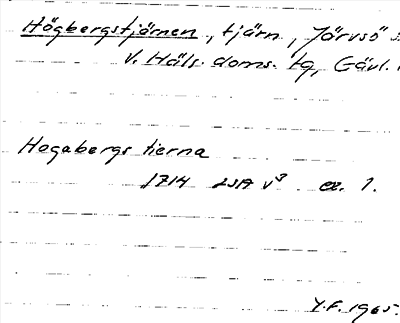 Högbergstjärnen, tjärn, Järvsö s
V. Häls. doms. tg, Gävl.
Hogabergs tierna
1714 LSA V³ æ. 1.
Y.F. 1965.